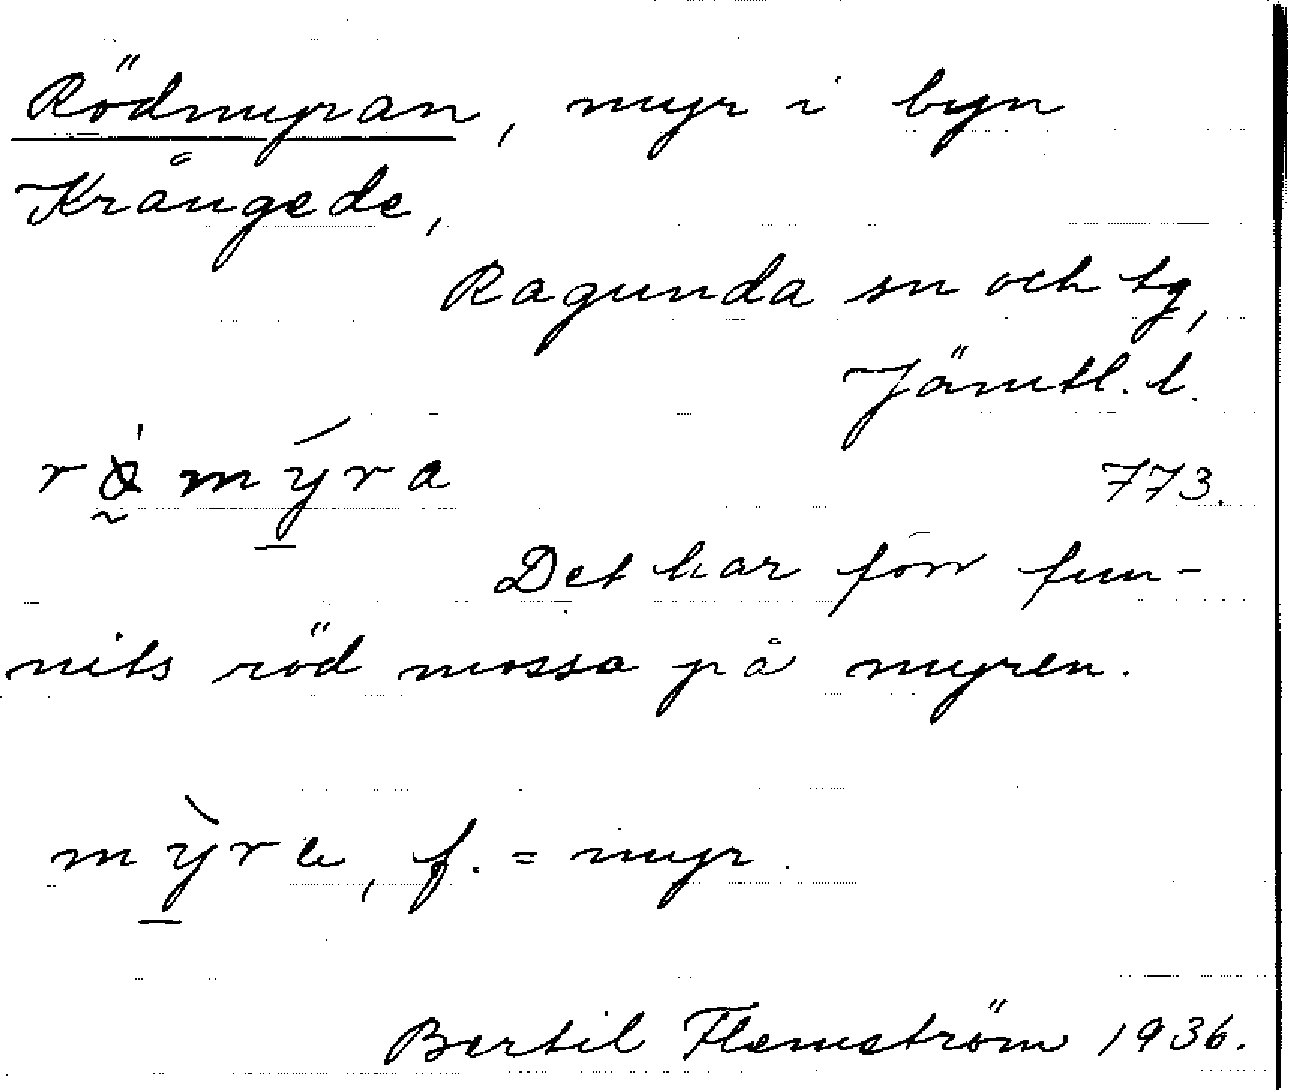 Rödmyran, myr i byn
Krångede,
Ragunda sn och tg,
Jämtl. l.
773.
Det har förr fun-
nits röd mossa på myren.
f. = myr.
Bertil Flemström 1936.